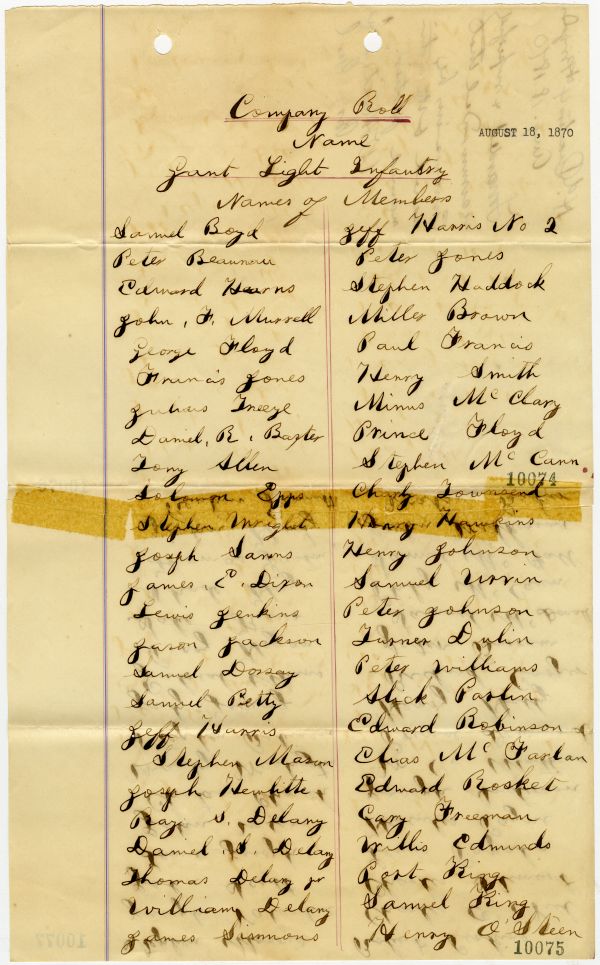 Company Roll
AUGUST 18, 1870
Name
Gant Light Infantry
Names of Members
Samuel Boyd
Peter Beaunau
Edward Hearns
John, F. Murrell
George Floyd
Francis Jones
Julius Treeze
Daniel, R. Baxter
Tony Allen
Solomon Epps
Stephen Wright
Joseph Sanns
James, E. Dixon
Lewis Jenkins
Jason Jackson
Samuel Dorsay
Samuel Petty
Jeff Harris
Stephen Mason
Joseph Hewlitte
S. Delany
Daniel, S. Delany
Thomas Delany Jr
William, Delany
James Simmons
Jeff Harris No 2
Peter Jones
Stephen Haddock
Miller Brown
Paul Francis
Henry Smith
Minus McClary
Prince Floyd
Stephen McCann
10074
Charly Townsend
Henry Hawkins
Henry Johnson
Samuel Urvin
Peter Johnson
Turner Dulin
Peter Williams
Slick Partin
Edward Robinson
Elias McFarlan
Edward Rosket
Cary Freeman
Willis Edmunds
Port King
Samuel King
Henry O'Steen
10075